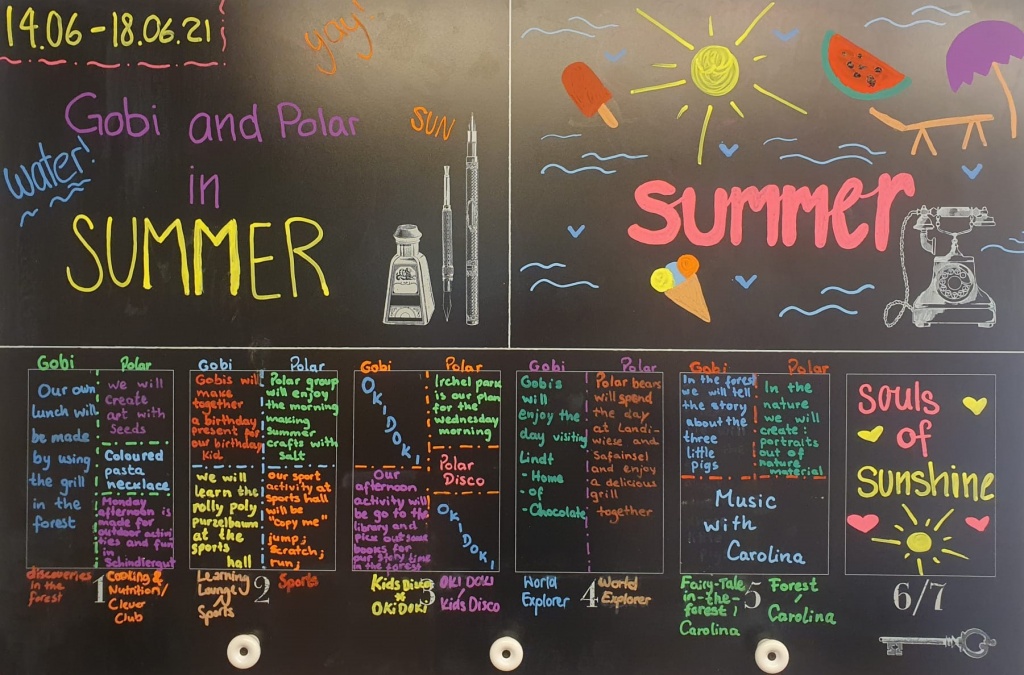 14.06 - 18.06.21
yay!
Gobi and Polar
SUN
water!
in
SUMMER
summer
Gobi
Our own
lunch will
be made
by using
the grill
in the
forest
Polar
we will
create
art with
seeds
Coloured
pasta
necklace
Monday
afternoon is
made for
outdoor activi
ties and fun
in
Schindlergut
discoveries
in the
forest
1
Cooking &
Nutrition/
Clever
Club
Gobi
Gobis will
make
together
a birthday
present for
our birthday
kid
we will
learn the
rolly poly
purzelbaum
at the
sports
hall
Polar
Polar group
will enjoy
the morning
making
summer
crafts with
salt
our sport
activity at
sports hall
will be
"copy me"
jump;
Scratch;
run;
Learning
Lounge
Sports
2
Sports
Gobi
OKIDOKI
Our
afternoon
activity will
be go to the
library and
pick out some
books for
our story time
in the forest
Polar
Irchel park
is our plan
for the
wednesday
morning
Polar
Disco
OKIDOKI
Kids Disco
OKiDoKi
3
OKI DOKI
Kids Disco
Gobi
Gobi's
will
enjoy the
day visiting
Lindt
- Home
- of
- Chocolate
Polar
Polar bears
will spend
the day
at Landi-
wiese and
Safainsel
and enjoy
a delicious
grill
together
World
Explorer
4
World
Explorer
Gobi
In the forest
we will tell
the story
about the
three
little
pigs
Polar
In the
nature
we will
create:
portraits
out of
nature
material
Music
with
Carolina
Fairy-Tale
in-the-
forest /
Carolina
5
Forest
/
Carolina
Souls
of
Sunshine
6/7